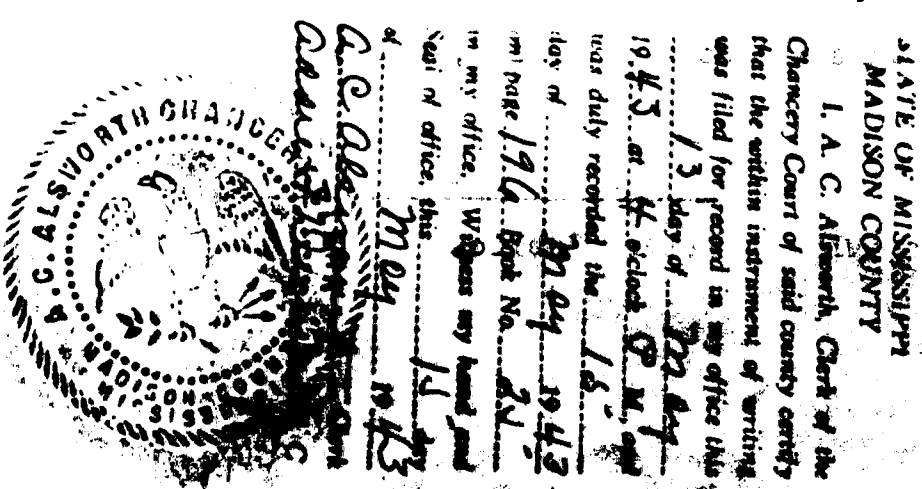 STATE OF MISSISSIPPI
MADISON COUNTY
I, A. C. Alsworth, Clerk of the
Chancery Court of said county certify
that the within instrument of writing
was filed for record in my office this
13 day of May
1943 at 4 o'clock P M, and
was duly recorded the 15
day of May 1943
on page 196 Book No.
in my office. Witness my hand and
seal of office, this 15 day
of May 1943
A. C. Clerk
A. C. ALSWORTH CHANCERY
MADISON COUNTY